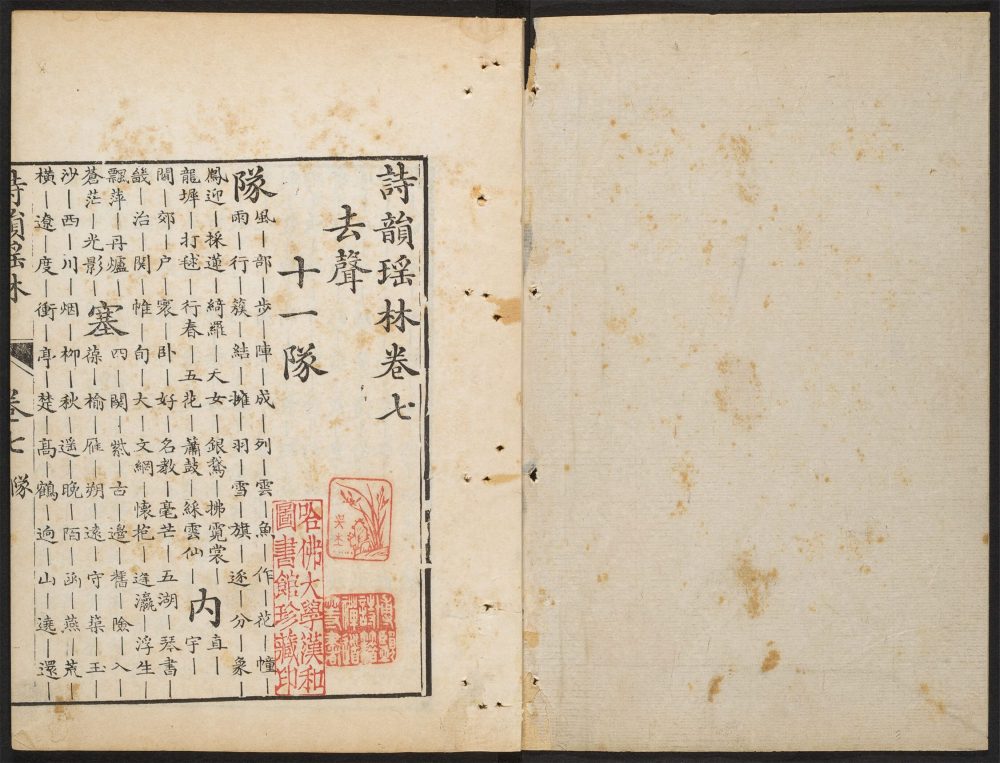 詩韻瑤林卷七
去聲
十一隊
隊
風｜部｜步｜陣｜成｜列｜雲｜魚｜作｜花｜幢｜
雨｜行｜簇｜結｜擁｜羽｜雪｜旗｜逐｜分｜象｜
鳳迎｜採蓮｜綺羅｜天女｜銀鵞｜拂霓裳｜
龍墀｜打毬｜行春｜五花｜簫鼓｜綵雲仙｜
內
直｜
宇｜
閫｜郊｜户｜寰｜卧｜好｜名教｜毫芒｜五湖｜琴書｜
畿｜治｜関｜帷｜旬｜大｜文網｜懷抱｜瀛｜浮生｜
飄萍｜丹爐｜
蒼茫｜光影｜
塞
四｜関｜紫｜古｜邊｜舊｜險｜入｜
葆｜榆｜雁｜朔｜遠｜守｜｜玉｜
沙｜西｜川｜烟｜柳｜秋｜遥｜晚｜陌｜函｜燕｜荒｜
橫｜遼｜度｜衝｜亭｜楚｜髙｜鶴｜逈｜山｜遶｜還｜
詩韻瑤林
卷七
隊
哈佛大學漢和
圖書館珍藏印